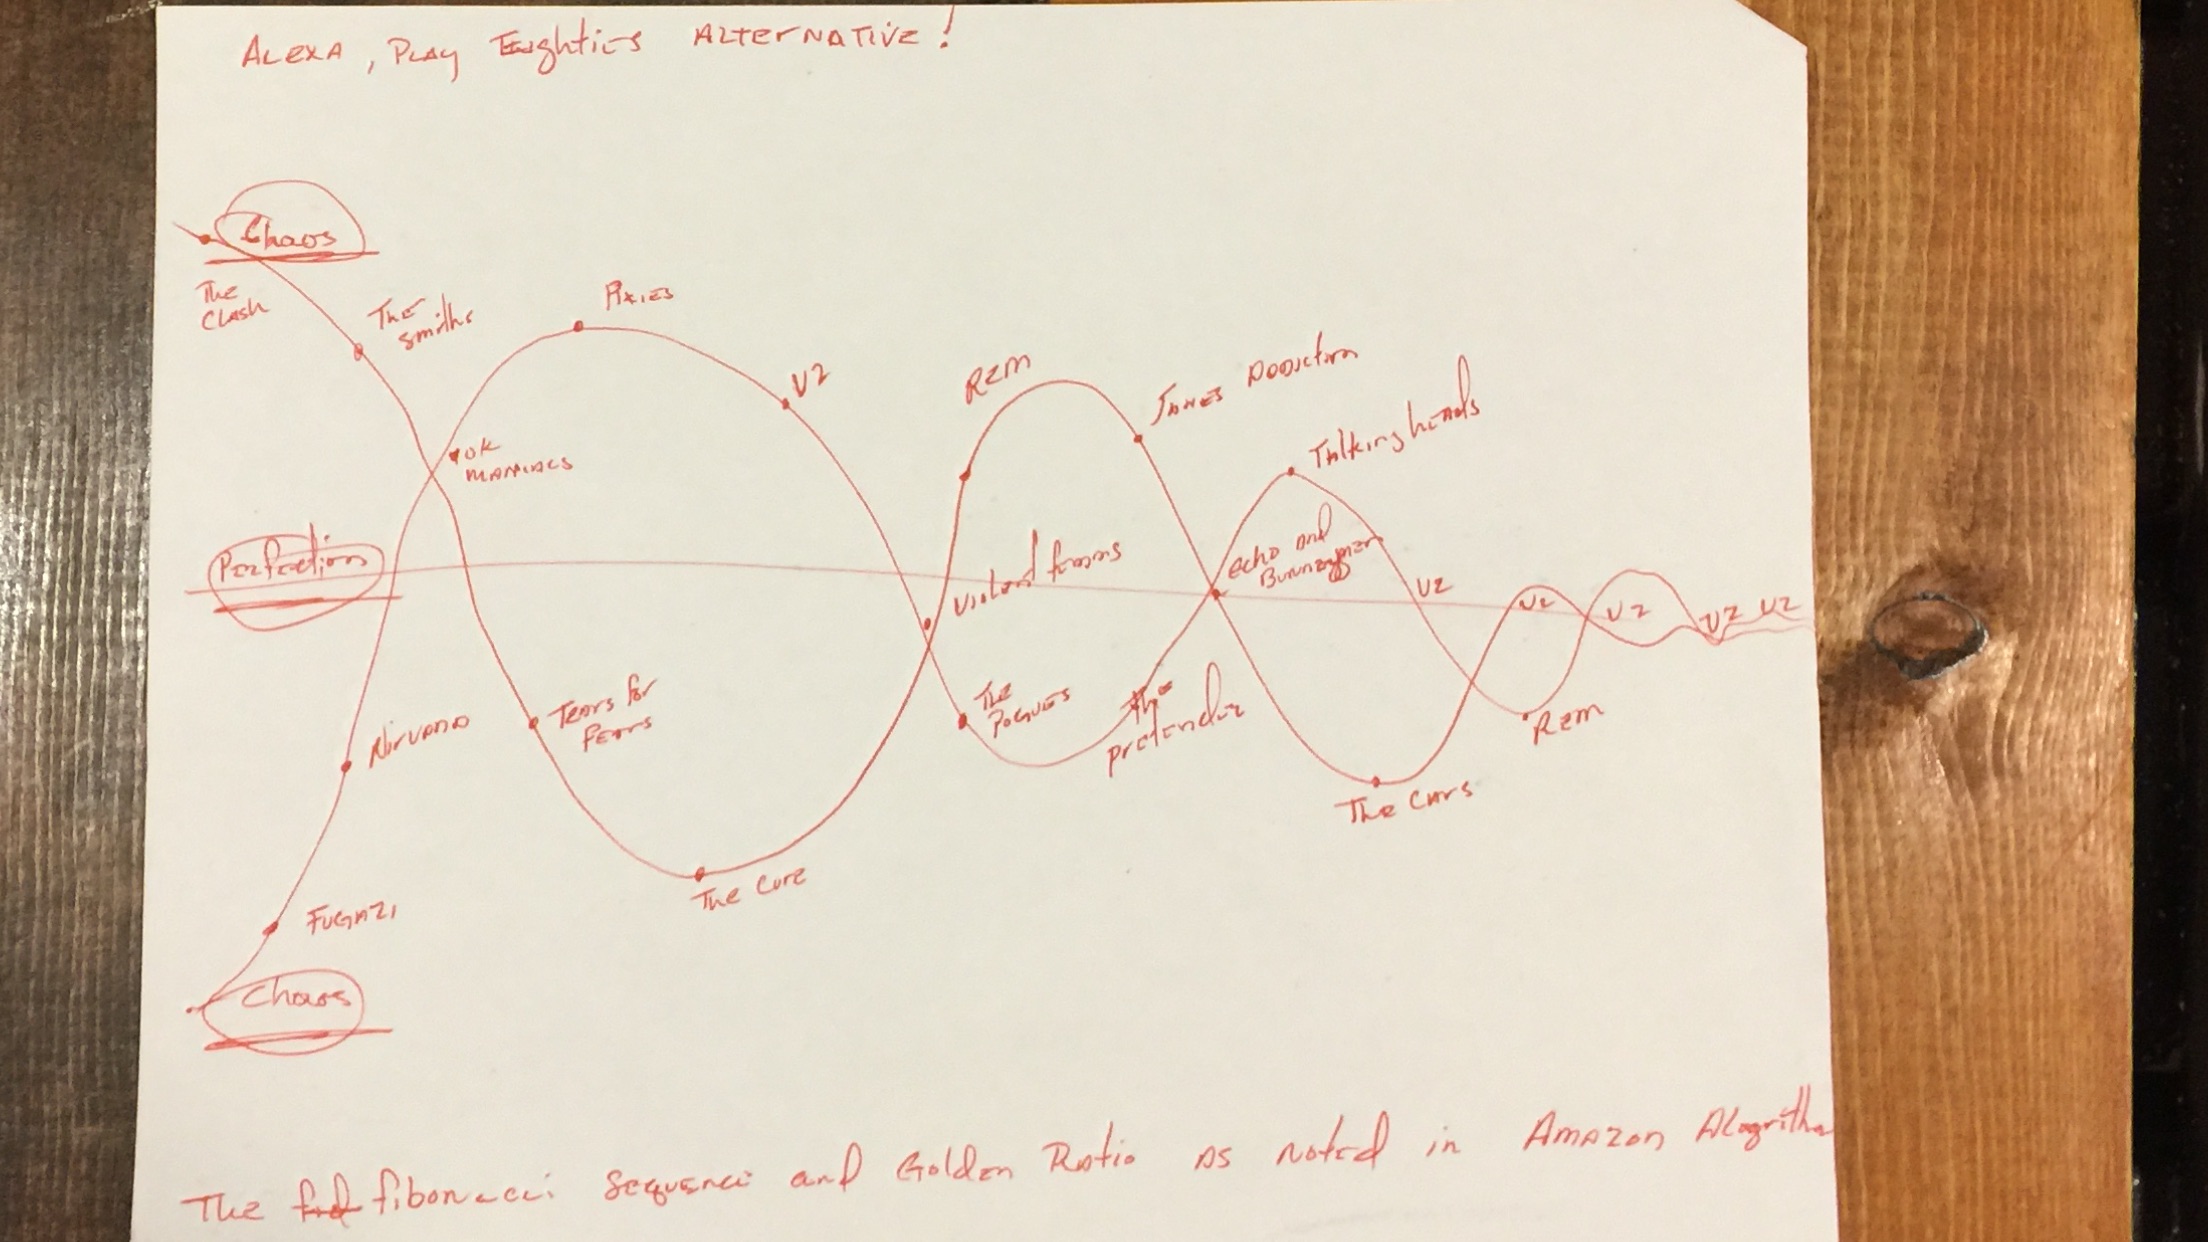 ALEXA, PLAY Eighties ALTERNATIVE!
Chaos
The
Clash
The
Smiths
Pixies
U2
REM
Janes Addiction
Talking heads
10K
MANIACS
Perfection
Violent femms
echo and
Bunnzymen
U2
U2
U2
U2
U2
Nirvana
Tears for
Fears
The
Pogues
The
pretender
REM
The Cars
The Cure
FUGAZI
Chaos
The fibonacci Sequence and Golden Ratio as noted in Amazon